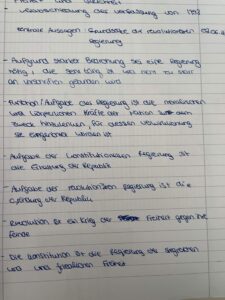 Verabschiedung der Verfassung von 1793
zentrale Aussagen: Grundsätze der revolutionären
Regierung
• Aufgrund starker Bedrohung sei eine Regierung
nötig, die sich nicht zu starr
an Vorschriften gebunden wird
• Funktion/Aufgabe der Regierung ist die moralischen
und körperlichen Kräfte der Nation auf dem
Zweck hinzulenken, für dessen Verwirklichung
sie eingerichtet worden ist
• Aufgabe der konstitutionellen Regierung ist
die Erhaltung der Republik
• Aufgabe der revolutionären Regierung ist die
Gründung der Republik
• Revolution ist ein Krieg der Freiheit gegen ihre
Feinde
• Die Konstitution ist die Regierung der siegreichen
und friedlichen Freiheit